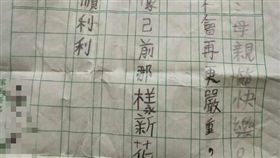 母親節快樂。
會再更嚴重，
像己前那樣新花
順利利